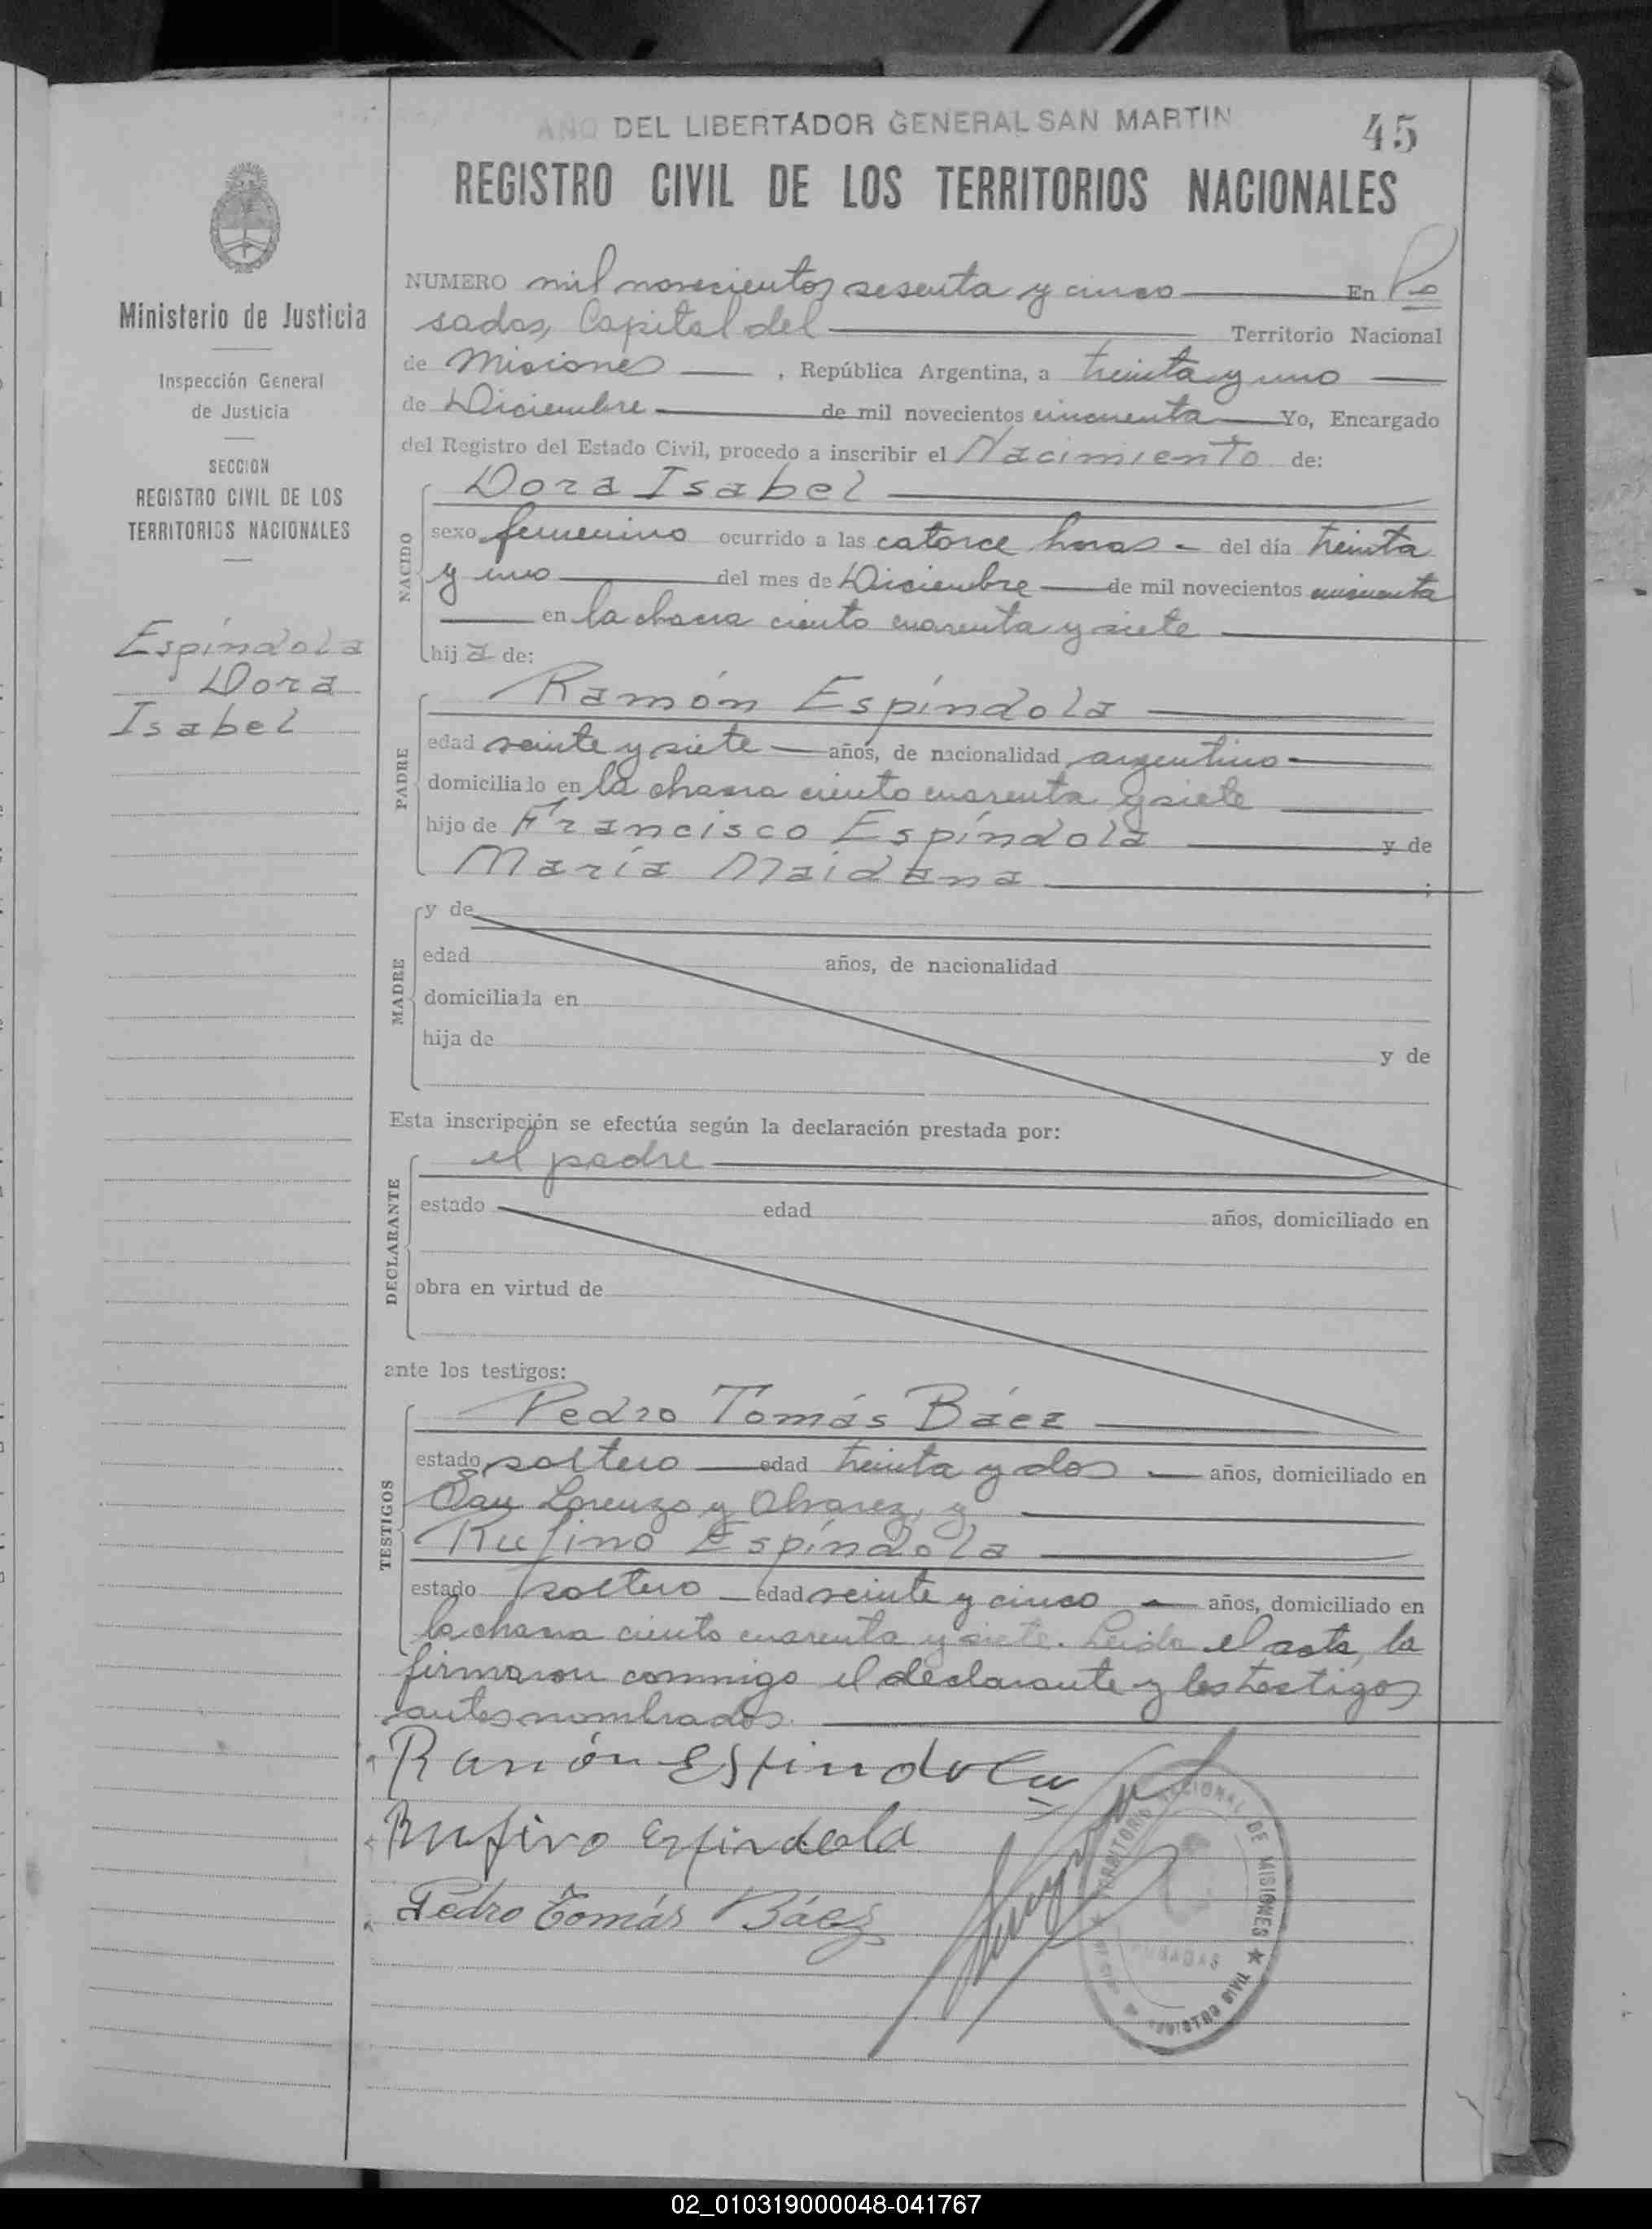 AÑO DEL LIBERTADOR GENERAL SAN MARTIN
45
REGISTRO CIVIL DE LOS TERRITORIOS NACIONALES
Ministerio de Justicia
Inspección General
de Justicia
SECCION
REGISTRO CIVIL DE LOS
TERRITORIOS NACIONALES
Espíndola
Dora
Isabel
NUMERO mil novecientos sesenta y cinco En Po
sadas, Capital del Territorio Nacional
de Misiones, República Argentina, a treinta y uno
de Diciembre de mil novecientos cincuenta Yo, Encargado
del Registro del Estado Civil, procedo a inscribir el Nacimiento de:
NACIDO
Dora Isabel
sexo femenino ocurrido a las catorce horas - del día treinta
y uno del mes de Diciembre de mil novecientos cincuenta
en la chacra ciento cuarenta y siete
hija de:
PADRE
Ramón Espíndola
edad veinte y siete años, de nacionalidad argentino
domiciliado en la chacra ciento cuarenta y siete
hijo de Francisco Espíndola y de
María Maidana ;
MADRE
y de
edad años, de nacionalidad
domiciliada en
hija de y de
Esta inscripción se efectúa según la declaración prestada por:
DECLARANTE
el padre
estado edad años, domiciliado en
obra en virtud de
ante los testigos:
TESTIGOS
Pedro Tomás Báez
estado soltero edad treinta y dos años, domiciliado en
San Lorenzo y Alvarez, y
Rufino Espíndola
estado soltero edad veinte y cinco años, domiciliado en
la chacra ciento cuarenta y siete. Leida el acta, la
firmaron conmigo el declarante y los testigos
antes nombrados.
Ramón Espindola
Rufino Espindola
Pedro Tomás Báez
TERRITORIO NACIONAL DE MISIONES
POSADAS
REGISTRO CIVIL
02_010319000048-041767